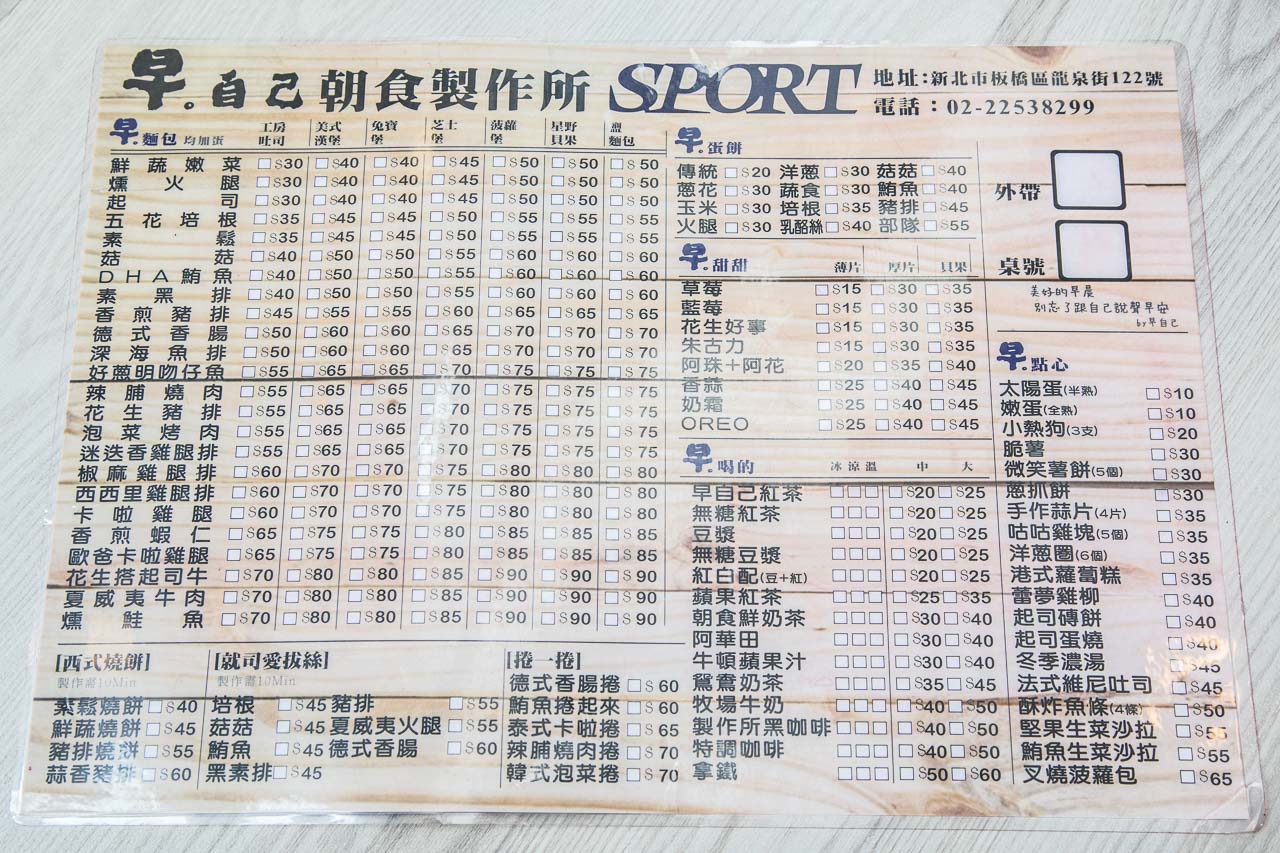 早。自己朝食製作所 SPORT
地址:新北市板橋區龍泉街122號
電話:02-22538299
早。麵包 均加蛋 工房吐司 美式漢堡 兔寶堡 芝士堡 菠蘿堡 星野貝果 盟麵包
鮮蔬嫩菜 □$30 □$40 □$40 □$45 □$50 □$50 □$50
燻火腿 □$30 □$40 □$40 □$45 □$50 □$50 □$50
起司 □$30 □$40 □$40 □$45 □$50 □$50 □$50
五花培根 □$35 □$45 □$45 □$50 □$55 □$55 □$55
素鬆 □$35 □$45 □$45 □$50 □$55 □$55 □$55
菇菇 □$40 □$50 □$50 □$55 □$60 □$60 □$60
DHA鮪魚 □$40 □$50 □$50 □$55 □$60 □$60 □$60
素黑排 □$40 □$50 □$50 □$55 □$60 □$60 □$60
香煎豬排 □$45 □$55 □$55 □$60 □$65 □$65 □$65
德式香腸 □$50 □$60 □$60 □$65 □$70 □$70 □$70
深海魚排 □$50 □$60 □$60 □$65 □$70 □$70 □$70
好蔥明吻仔魚 □$55 □$65 □$65 □$70 □$75 □$75 □$75
辣脯燒肉 □$55 □$65 □$65 □$70 □$75 □$75 □$75
花生豬排 □$55 □$65 □$65 □$70 □$75 □$75 □$75
泡菜烤肉 □$55 □$65 □$65 □$70 □$75 □$75 □$75
迷迭香雞腿排 □$55 □$65 □$65 □$70 □$75 □$75 □$75
椒麻雞腿排 □$60 □$70 □$70 □$75 □$80 □$80 □$80
西西里雞腿排 □$60 □$70 □$70 □$75 □$80 □$80 □$80
卡啦雞腿 □$60 □$70 □$70 □$75 □$80 □$80 □$80
香煎蝦仁 □$65 □$75 □$75 □$80 □$85 □$85 □$85
歐爸卡啦雞腿 □$65 □$75 □$75 □$80 □$85 □$85 □$85
花生搭起司牛 □$70 □$80 □$80 □$85 □$90 □$90 □$90
夏威夷牛肉 □$70 □$80 □$80 □$85 □$90 □$90 □$90
燻鮭魚 □$70 □$80 □$80 □$85 □$90 □$90 □$90
[西式燒餅]
製作需10Min
素鬆燒餅□$40
鮮蔬燒餅□$45
豬排燒餅□$55
蒜香豬排□$60
[就司愛拔絲]
製作需10Min
培根 □$45 豬排 □$55
菇菇 □$45 夏威夷火腿 □$55
鮪魚 □$45 德式香腸 □$60
黑素排□$45
[捲一捲]
德式香腸捲□$60
鮪魚捲起來□$60
泰式卡啦捲□$65
辣脯燒肉捲□$70
韓式泡菜捲□$70
早。蛋餅
傳統□$20 洋蔥□$30 菇菇□$40
蔥花□$30 蔬食□$30 鮪魚□$40
玉米□$30 培根□$35 豬排□$45
火腿□$30 乳酪絲□$40 部隊□$55
早。甜甜 薄片 厚片 貝果
草莓 □$15 □$30 □$35
藍莓 □$15 □$30 □$35
花生好事 □$15 □$30 □$35
朱古力 □$15 □$30 □$35
阿珠+阿花 □$20 □$35 □$40
香蒜 □$25 □$40 □$45
奶霜 □$25 □$40 □$45
OREO □$25 □$40 □$45
早。喝的 冰 涼 溫 中 大
早自己紅茶 □□□ □$20□$25
無糖紅茶 □□□ □$20□$25
豆漿 □□□ □$20□$25
無糖豆漿 □□□ □$20□$25
紅白配(豆+紅) □□□ □$20□$25
蘋果紅茶 □□□ □$25□$35
朝食鮮奶茶 □□□ □$30□$40
阿華田 □□□ □$30□$40
牛頓蘋果汁 □□□ □$30□$40
鴛鴦奶茶 □□□ □$35□$45
牧場牛奶 □□□ □$40□$50
製作所黑咖啡 □□□ □$40□$50
特調咖啡 □□□ □$40□$50
拿鐵 □□□ □$50□$60
外帶
桌號
美好的早晨
別忘了跟自己說聲早安
by早自己
早。點心
太陽蛋(半熟) □$10
嫩蛋(全熟) □$10
小熱狗(3支) □$20
脆薯 □$30
微笑薯餅(5個) □$30
蔥抓餅 □$30
手作蒜片(4片) □$35
咕咕雞塊(5個) □$35
洋蔥圈(6個) □$35
港式蘿蔔糕 □$35
蕾夢雞柳 □$40
起司磚餅 □$40
起司蛋燒 □$40
冬季濃湯 □$45
法式維尼吐司 □$45
酥炸魚條(4條) □$50
堅果生菜沙拉 □$55
鮪魚生菜沙拉 □$55
叉燒菠蘿包 □$65